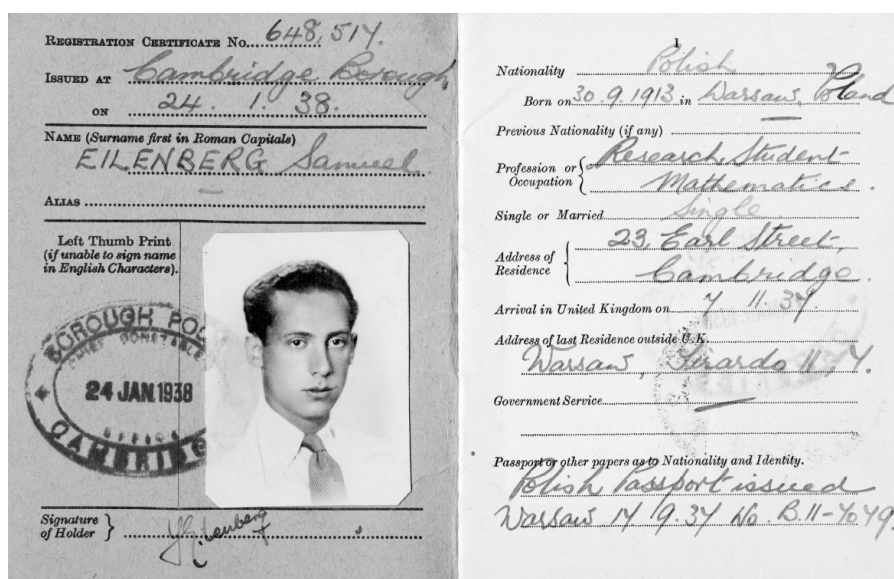 REGISTRATION CERTIFICATE No. 648,517.
ISSUED AT Cambridge Borough,
ON 24. 1. 38.
NAME (Surname first in Roman Capitals)
EILENBERG Samuel.
ALIAS
Left Thumb Print
(if unable to sign name
in English Characters).
BOROUGH POL
CHIEF CONSTABLE
24 JAN. 1938
OFFICE
CAMBRIDG
Signature
of Holder } S Eilenberg
1
Nationality Polish
Born on 30.9.1913 in Warsaw, Poland
Previous Nationality (if any)
Profession or Occupation { Research Student
Mathematics.
Single or Married Single
Address of Residence { 23, Earl Street,
Cambridge.
Arrival in United Kingdom on 7 11. 37.
Address of last Residence outside U.K.
Warsaw, 11, 7.
Government Service
Passport or other papers as to Nationality and Identity.
Polish Passport issued
Warsaw 17. 9. 37 No. B.11-7049